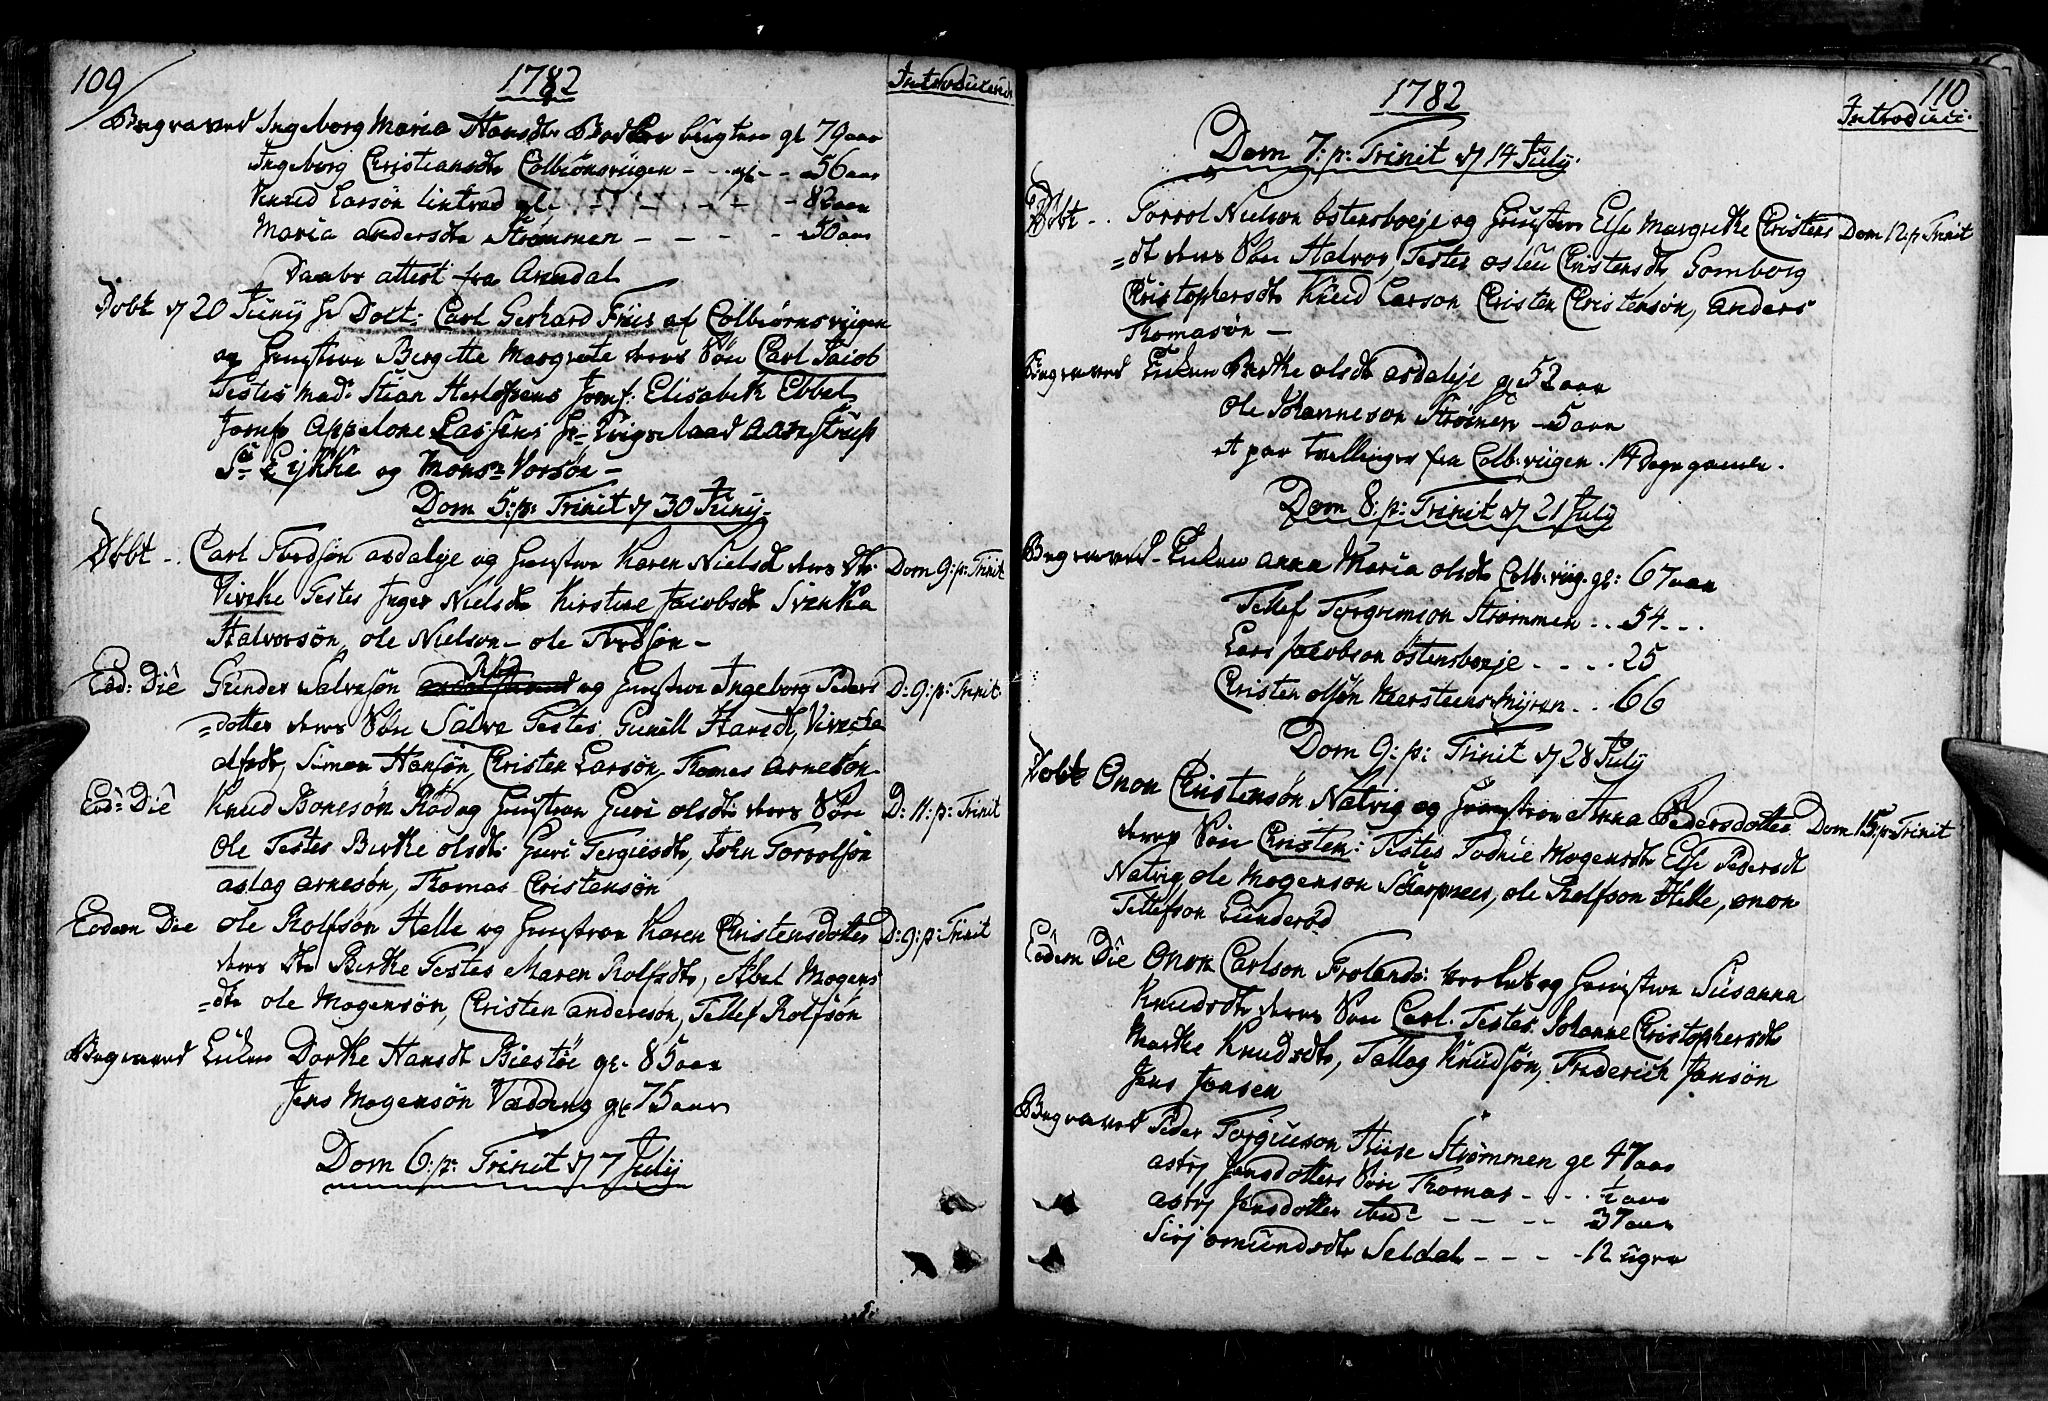 109
1782
Begraved Ingeborg Maria Hansdtr gl 79 aar
Ingeborg Christiansdtr Colbiønsviigen - - gl - - 56 aar
Knud Larsøn gl - - - - 82 aar
Maria Andersdtr Strømmen - - - - 50 aar
Daabs attest fra Arendal
Døbt d 20 Junij Hr Doct: Carl Gerhard Friis af Colbiørnsviigen
og Hustrue Birgitte Margrete deres Søn Carl Jacob
Testes Mad: Stian Herlofsens Jomf: Elisabeth Ebbel
Jomf Appelone Lassens Hr Aamstrup
Sr Lykke og Monsr Vorsøe -
Dom 5: p: Trinit d 30 Junij
Døbt - . Carl Tordsøn Asdalsje og Hustrue Karen Nielsdt deres Dtr: Dom 9: p: Trinit
Vivike Testes Inger Nielsdtr Kirstine Jacobsdtr Svenke
Halvorsøn, Ole Nielsøn - Ole Tordsøn -
Eod: Die Gunder Salvesøn og Hustrue Ingeborg Peders D: 9: p: Trinit
=dotter deres Søn Salve Testes Gunill Hansdt, Vivicke
Simon Hansøn, Christen Larsøn, Thomas Arnesøn
Eod: Die Knud Bonesøn Rød og Hustrue Guri Olsdt: deres Søn D: 11: p: Trinit
Ole Testes Birthe Olsdt: Guri Tergiesdtr, John Torrolfsøn
Aslag Arnesøn, Thomas Christensøn
Eodem Die Ole Rolfsøn Helle og Hustrue Karen Christensdotter D: 9: p: Trinit
deres Dtr Birthe Testes Maren Rolfsdtr, Abel Mogens
=dtr Ole Mogensøn, Christen Andersøn, Tellef Rolfsøn
Begraved Dorthe Hansdt Biestøe gl. 85 aar
Jens Mogensøn Vædding gl 75 aar
Dom 6: p: Trinit d 7 July
110
1782
Introduci.
Dom 7: p: Trinit d 14 July.
Døbt - . Torrol Nielsøn Østensboeje og Hustrue Else Margrethe Christens Dom 12: p Trinit
=dt deres Søn Halvor, Testes Christensdtr Gomborg
Christophersdtr Knud Larsøn Christen Christensøn, Anders
Thomasøn -
Begraved Birthe Olsdt Asdalsje gl 52 aar
Ole Johannesøn Strømen - 5 aar
et par tvillinger fra Colb:viigen . 14 dage gamle.
Dom 8: p: Trinit d 21 July
Begraved - Anna Maria Olsdtr Colb:viig. gl: 67 aar
Tellef Torgrimsøn Strømmen . . 54 . . .
Lars Jacobsøn Østensboeje . . . . 25
Christen Olsøn Kierstensmyren . . 66
Dom 9: p: Trinit d 28 July
Døbt Onon Christensøn Natvig og Hustrue Anna Pedersdotter Dom 15: p: Trinit
deres Søn Christen: Testes Todnie Mogensdtr Else Pedersdt
Natvig, Ole Mogensøn Skarpnæs, Ole Rolfson Helle, Onon
Tellefsøn Lunderød
Eodem Die Onon Carlsøn Frolands: og Hustrue Susanna
Knudsdtr deres Søn Carl. Testes. Johanne Christophersdtr
Marthe Knudsdtr, Tallag Knudsøn, Friderich Jansøn
Jens Jansen
Begraved Peder Torjussøn Strømmen gl 47 aar
Astrj Jensdotters Søn Thomas - - - . ½ aar
Astrj Jensdotter ibid - - - - 37 aar
Sirj Omundsdtr Seldal - - - - 12 ugr